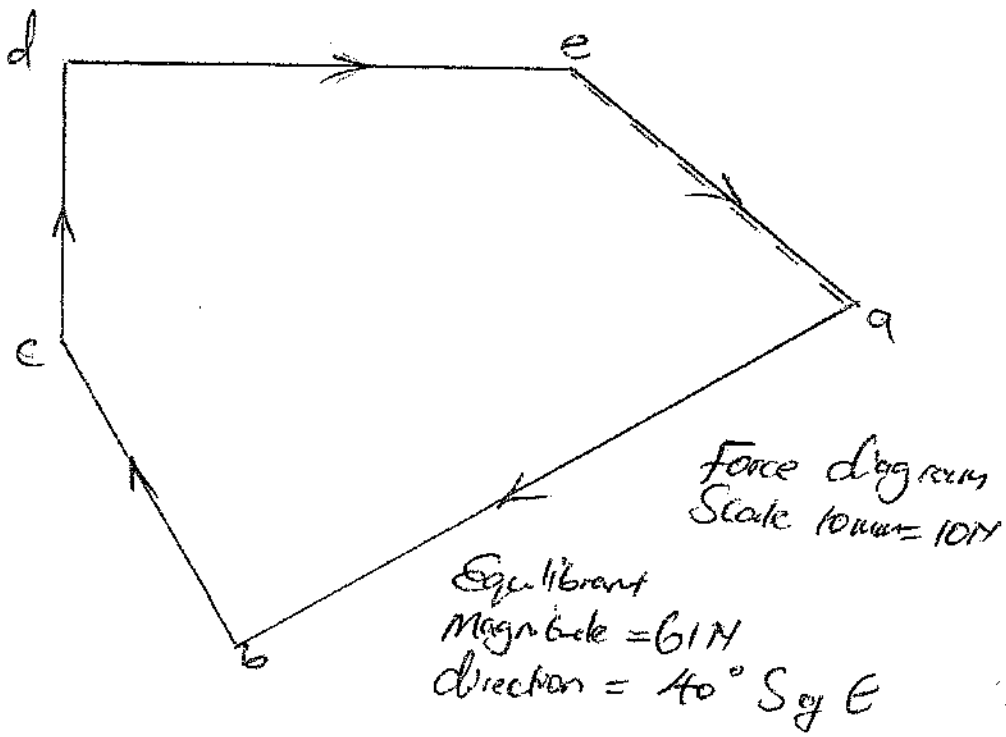 d
e
c
a
b
Force diagram
Scale 10mm = 10N
Equlibrant
Magnitude = 61N
direction = 40° S of E